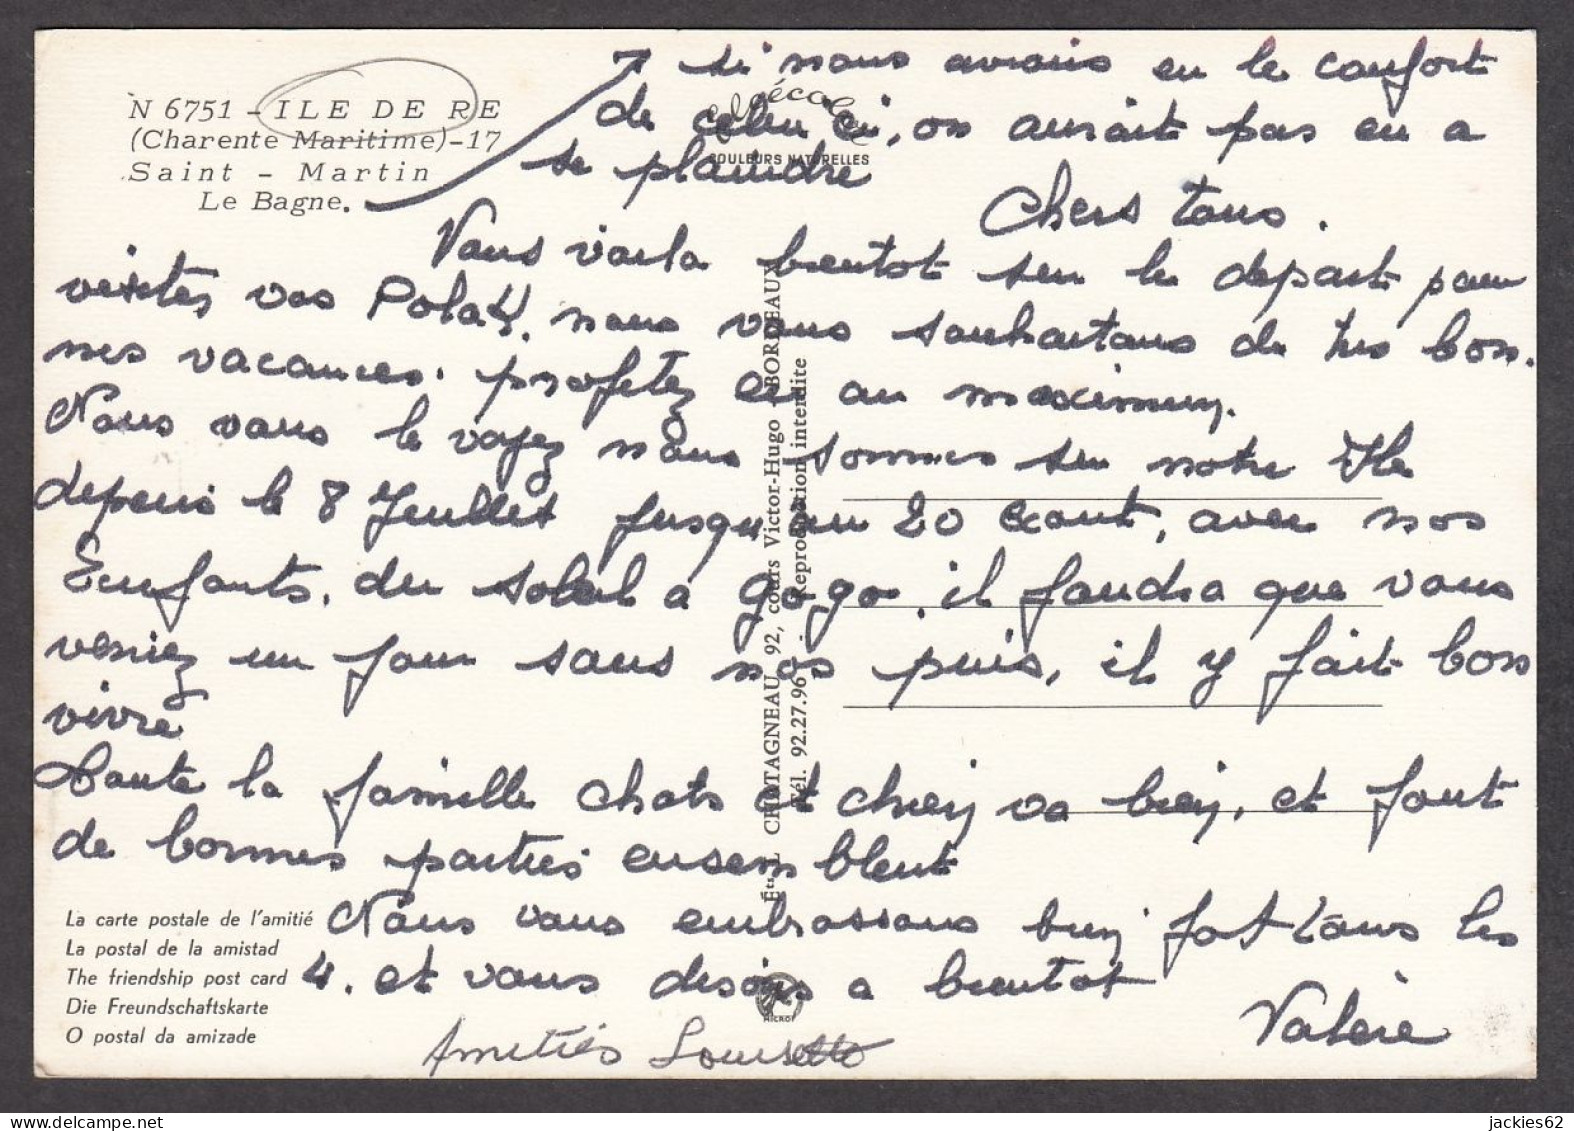 N 6751 - ILE DE RE
(Charente Maritime)-17
Saint - Martin
Le Bagne.
si nous avions eu le confort
de celui ci, on aurait pas eu a
se plaindre
COULEURS NATURELLES
Chers tous.
Vous voila bientot sur le depart pour
visites vos Polak, nous vous souhaitons de tres bon.
nes vacances. profitez en au maximum.
Nous vous le voyez nous sommes sur notre Ile
depuis le 8 Juillet jusqu'au 20 Aout, avec nos
Enfants. du soleil a gogo. il faudra que vous
veniez un jour sans nos puis, il y fait bon
vivre
Toute la famille chats et chiens va bien, et font
de bonnes parties ensemblent
Nous vous embrassons bien fort tous les
4. et vous disons a bientot
Valère
Amitiés Louisette
La carte postale de l'amitié
La postal de la amistad
The friendship post card
Die Freundschaftskarte
O postal da amizade
Éts L. CHATAGNEAU 92, cours Victor-Hugo - BORDEAUX
Tél. 92.27.96 - Reproduction interdite
jackies62